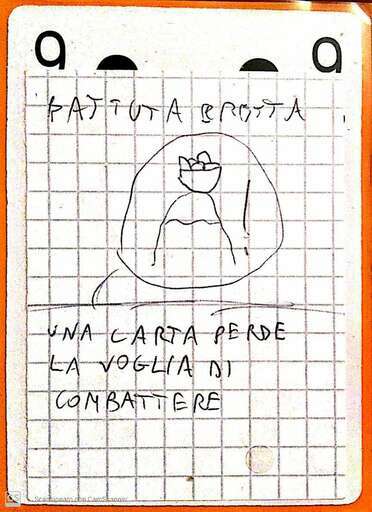 9 9
BATTUTA BRUTTA
!
UNA CARTA PERDE
LA VOGLIA DI
COMBATTERE
CS Scansionato con CamScanner